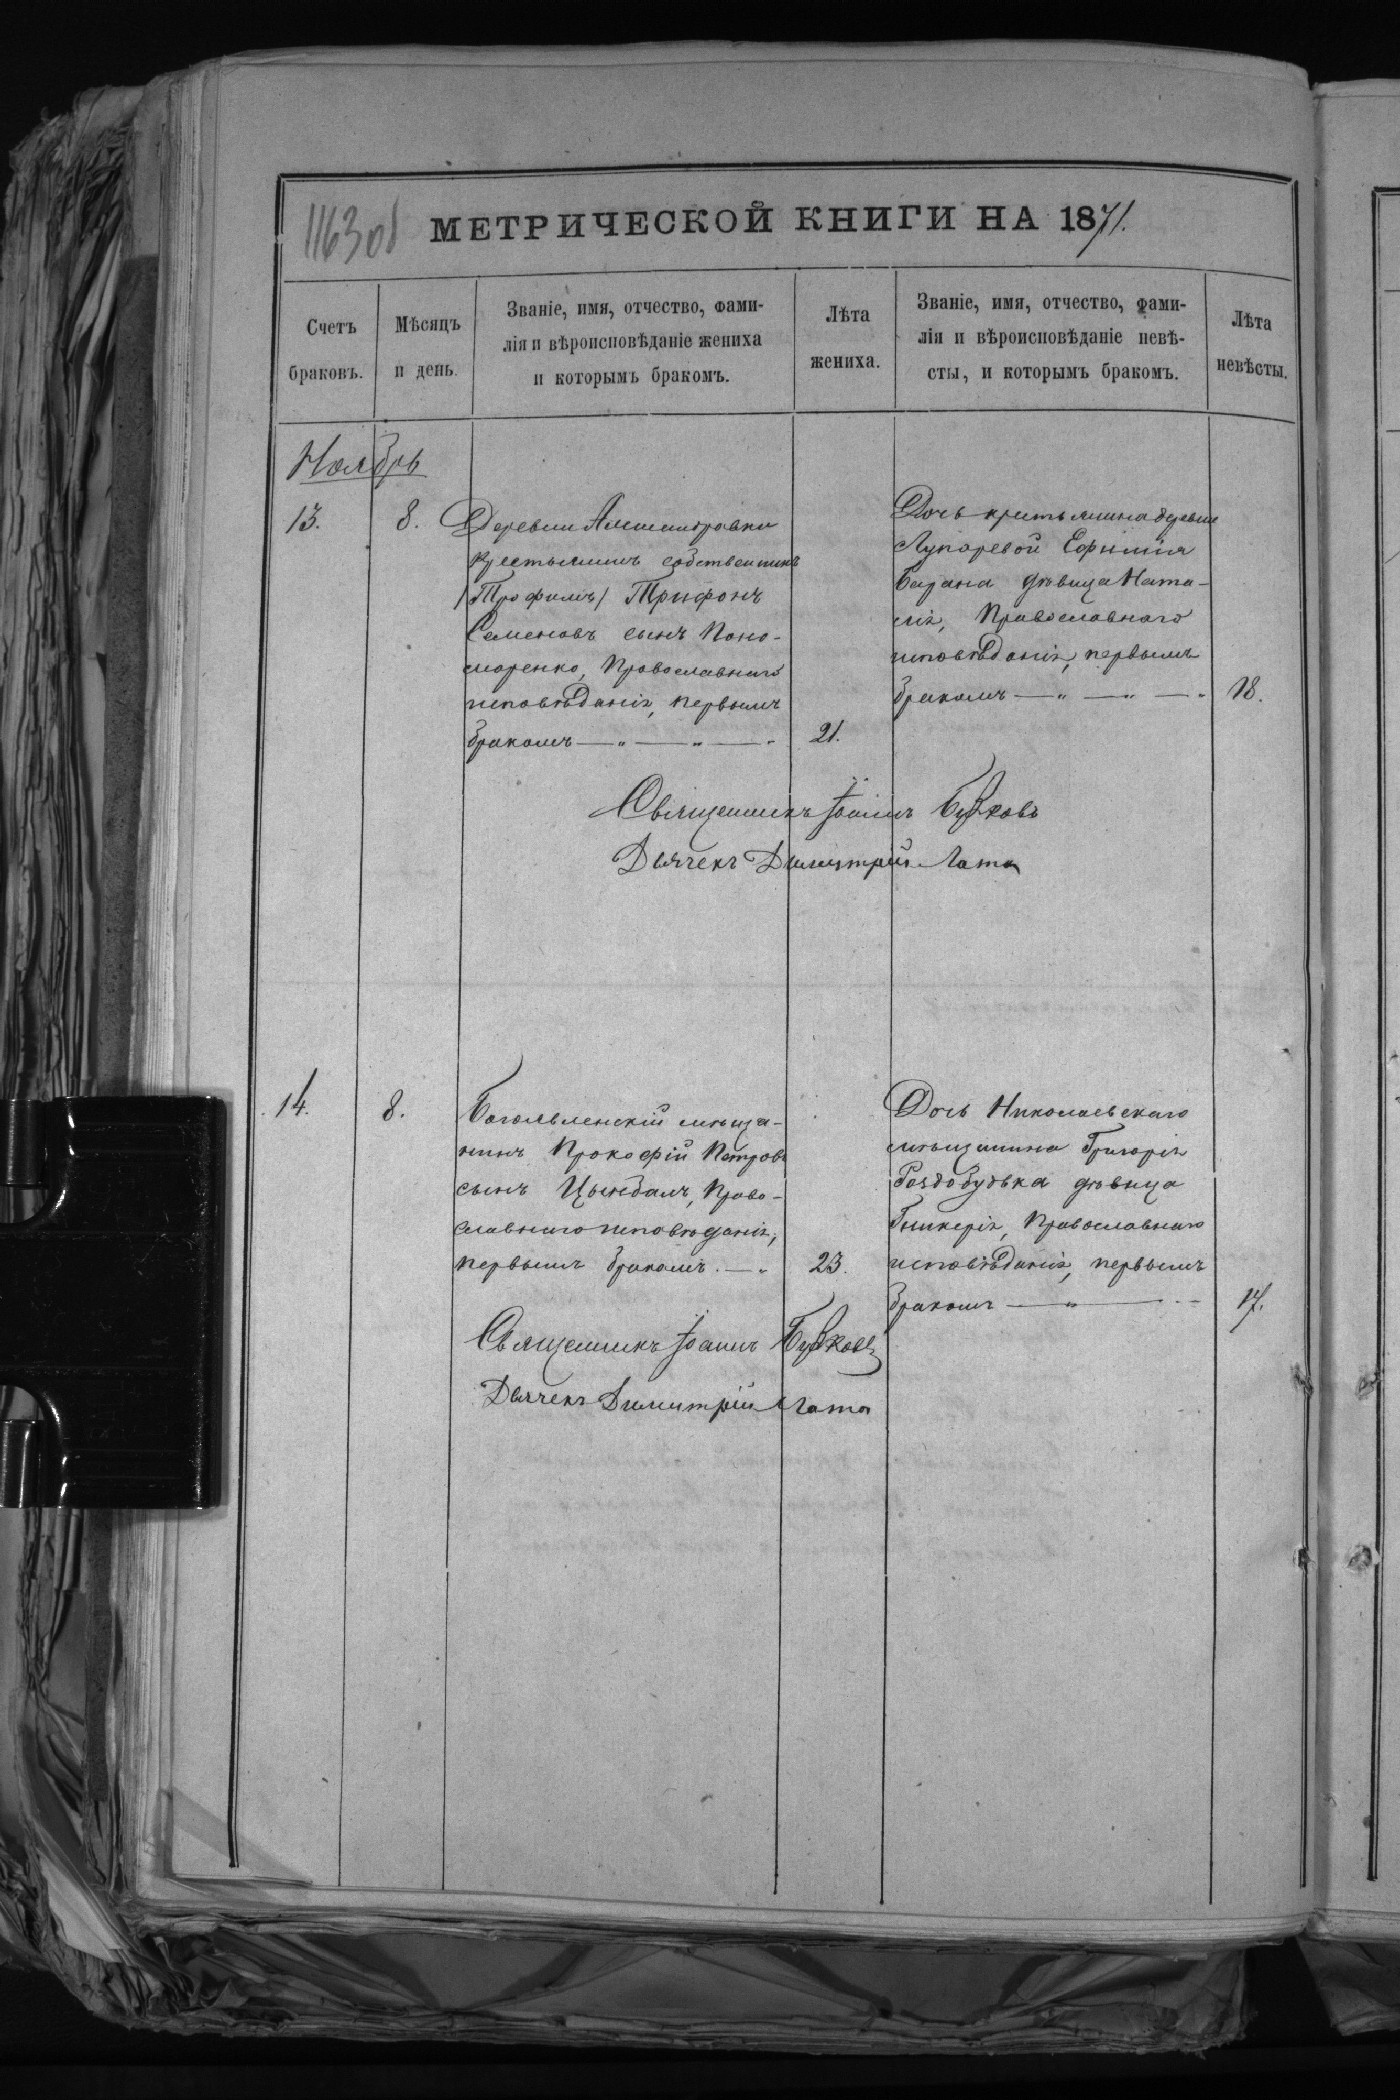 1163об
МЕТРИЧЕСКОЙ КНИГИ НА 1871.
Счетъ
браковъ.
Мѣсяцъ
и день.
Званіе, имя, отчество, фами-
лія и вѣроисповѣданіе жениха
и которымъ бракомъ.
Лѣта
жениха.
Званіе, имя, отчество, фами-
лія и вѣроисповѣданіе невѣ-
сты, и которымъ бракомъ.
Лѣта
невѣсты.
Ноябрь
13.
8.
Деревни
крестьянинъ собственникъ
/Трофимъ/ Трифонъ
Семеновъ сынъ Поно-
моренко, Православнаго
исповѣданія, первымъ
бракомъ — „ — „ — „
21.
Дочь крестьянина деревни
Лупаревой Ефимія
Барана дѣвица Ната-
лія, Православнаго
исповѣданія, первымъ
бракомъ — „ — „ — „
18.
Священникъ Іоаннъ
Дьячекъ Димитрій Лата
14.
8.
Богоявленскій мѣща-
нинъ Прокофій Петровъ
сынъ Цымбалъ, Право-
славнаго исповѣданія,
первымъ бракомъ. — „
23.
Дочь Николаевскаго
мѣщанина Григорія
Роздобудька дѣвица
Гликерія, Православнаго
исповѣданія, первымъ
бракомъ — „ —
17.
Священникъ Іоаннъ
Дьячекъ Димитрій Лата